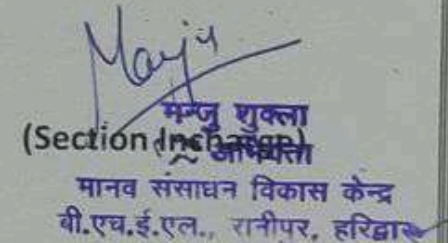 Manju
मन्जु शुक्ला
(Section Incharge)
मानव संसाधन विकास केन्द्र
बी.एच.ई.एल., रानीपुर, हरिद्वार